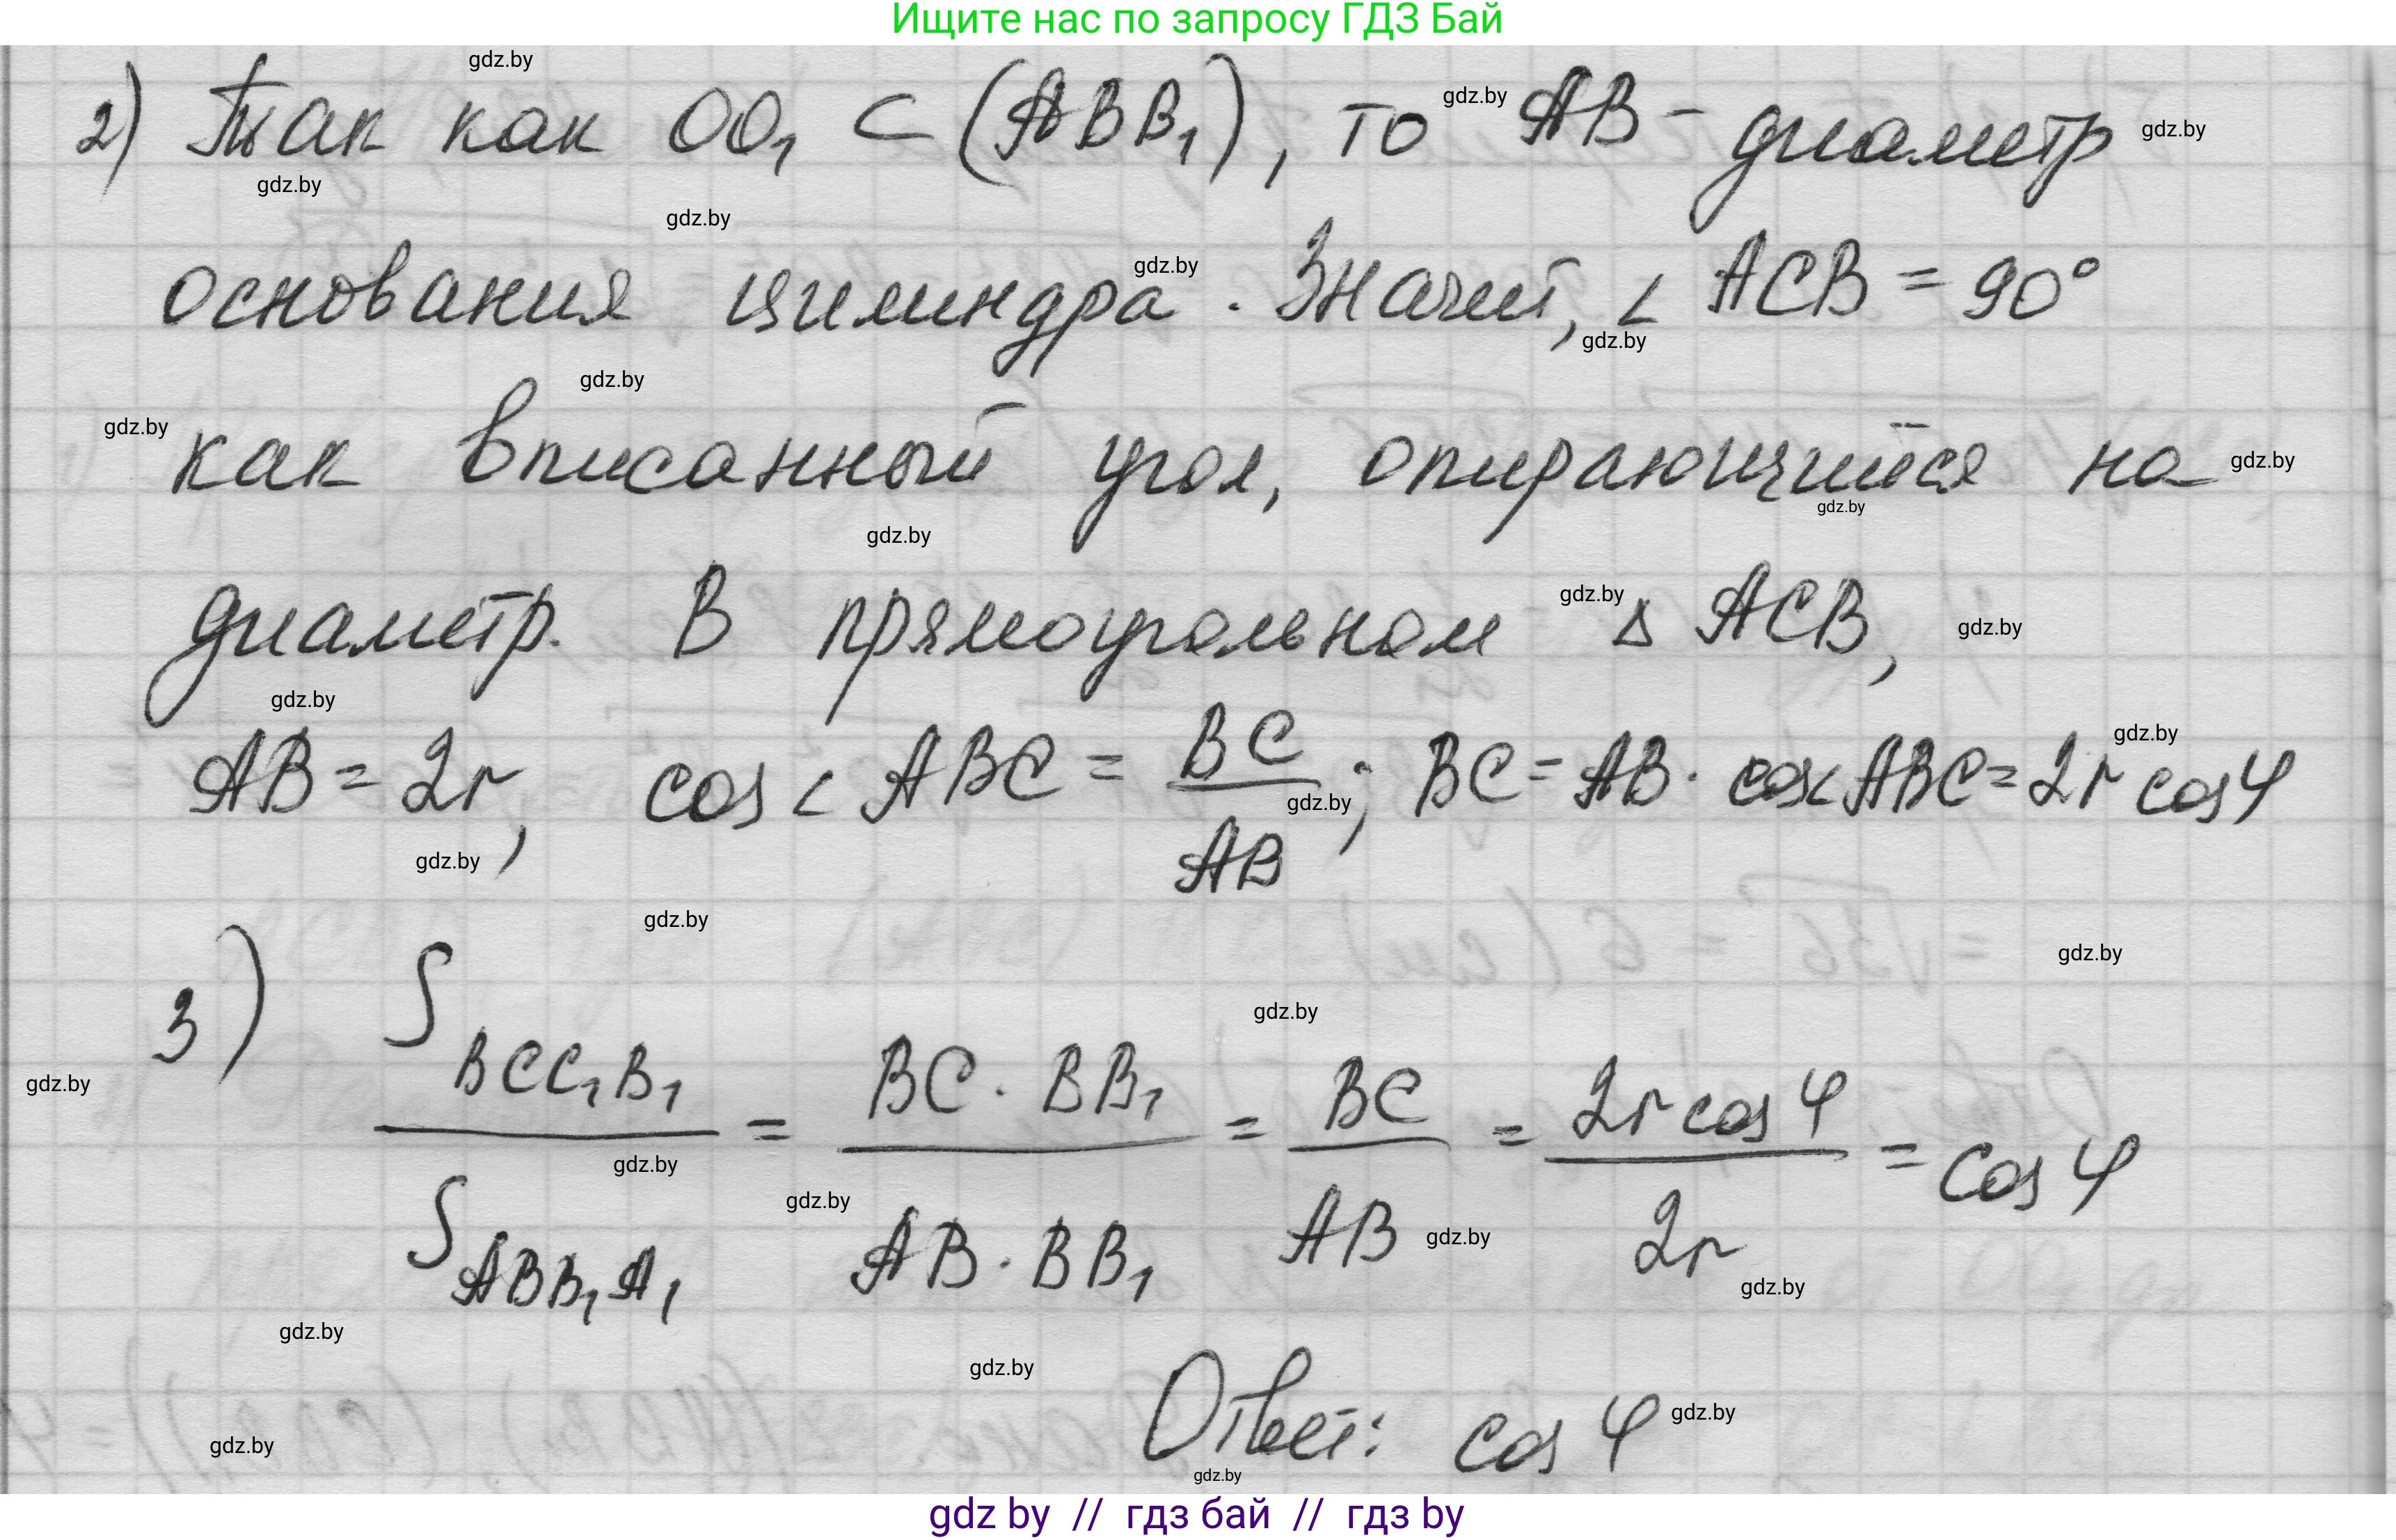 Ищите нас по запросу ГДЗ Бай
gdz.by
2) Так как OO₁ ⊂ (ABB₁), то gdz.by AB - диаметр gdz.by
gdz.by
gdz.by
основания цилиндра. gdz.by Значит, ∠ ACB = 90°
gdz.by
gdz.by
gdz.by как вписанный угол, опирающийся на gdz.by
gdz.by
gdz.by
диаметр. В прямоугольном gdz.by Δ ACB, gdz.by
gdz.by
gdz.by
AB = 2r, cos ∠ ABC = BC/AB; gdz.by BC = AB · cos∠ABC = 2r cos φ
gdz.by
gdz.by
gdz.by
gdz.by
3) S BCC₁B₁ / S ABB₁A₁ = BC · BB₁ / AB · BB₁ = BC / AB = 2r cos φ / 2r = cos φ
gdz.by
gdz.by
gdz.by
gdz.by
gdz.by
gdz.by
gdz.by
Ответ: cos φ gdz.by
gdz.by
gdz.by
gdz by // гдз бай // гдз by